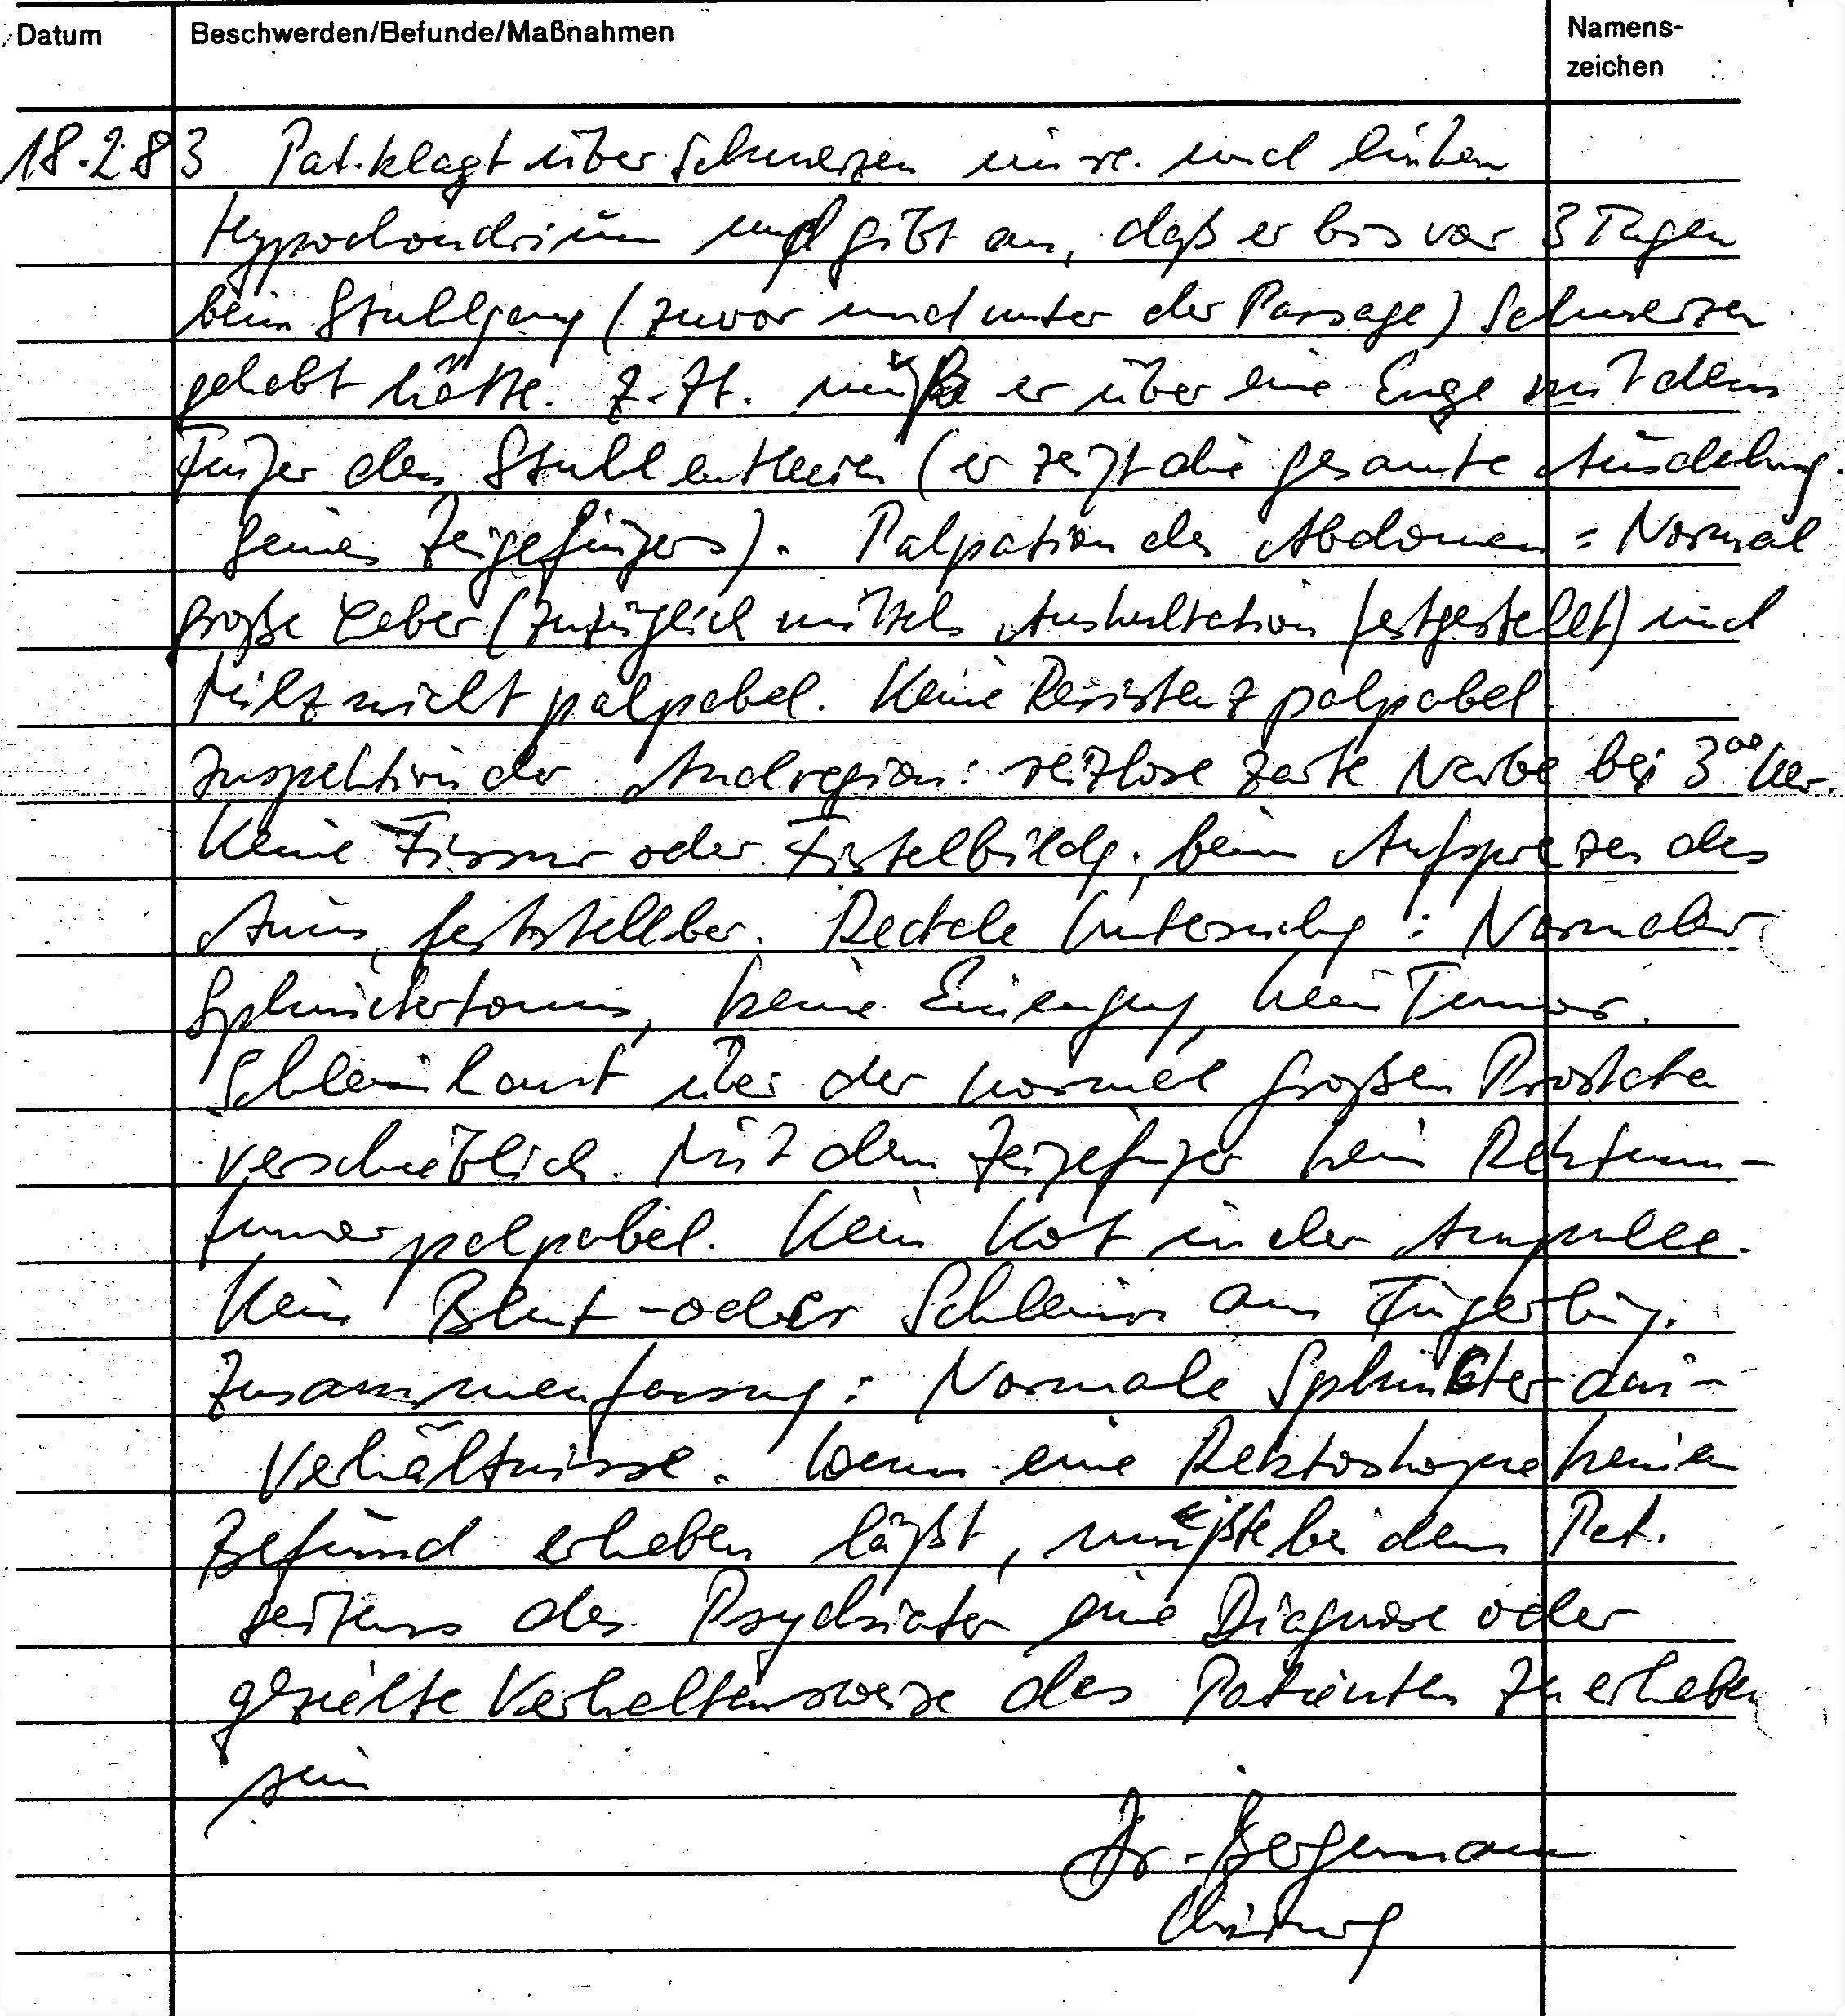 Datum Beschwerden/Befunde/Maßnahmen Namens-
zeichen
18.2.83 Pat. klagt über Schmerzen im re. und linken
Hypochondrium und gibt an, daß er bis vor 3 Tagen
beim Stuhlgang (zuvor und unter der Passage) Schmerzen
gehabt hätte. Z.Zt. müße er über eine Enge mit dem
Finger den Stuhl entleeren (er zeigt die gesamte Ausdehnung
seines Zeigefingers). Palpation des Abdomen = Normal
große Leber (zuzüglich mittels Auskultation festgestellt) und
Milz nicht palpabel. Keine Resistenz palpabel.
Inspektion der Analregion: reizlose zarte Narbe bei 3⁰⁰ Uhr.
Keine Fissur oder Fistelbildg., beim Aufspreizen des
Anus, feststellbar. Rectale Untersuchg: Normaler
Sphinctertonus, keine Einengung, kein Tumor.
Schleimhaut über der normal großen Prostata
verschieblich. Mit dem Zeigefinger kein Rektum-
tumor palpabel. Kein Kot in der Ampulle.
Kein Blut- oder Schleim am Fingerling.
Zusammenfassung: Normale Sphinkter ani-
Verhältnisse. Wenn eine Rektoskopie keinen
Befund erheben läßt, müßte bei dem Pat.
seitens des Psychiater eine Diagnose oder
gezielte Verhaltensweise des Patienten zu erheben
sein
Dr. Bergemann
Chirurg